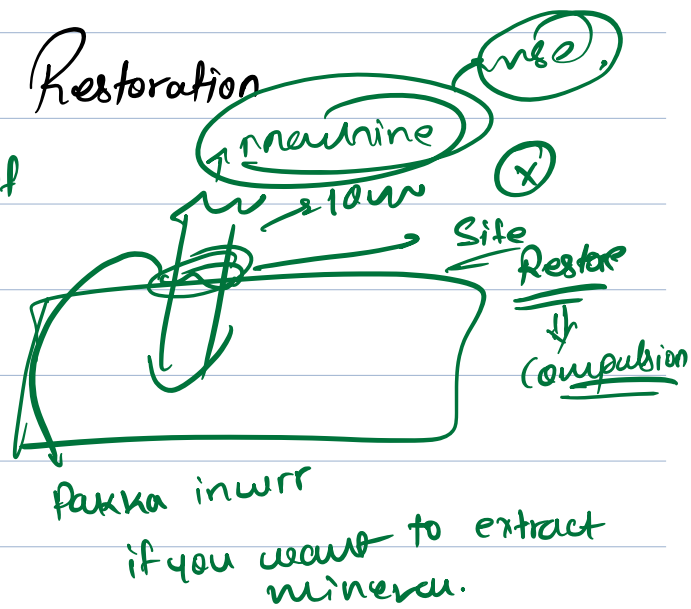 use.
Restoration
machine
x
f
slow
Site
Restore
Compulsion
Pakka incurr
if you want to extract
mineral.